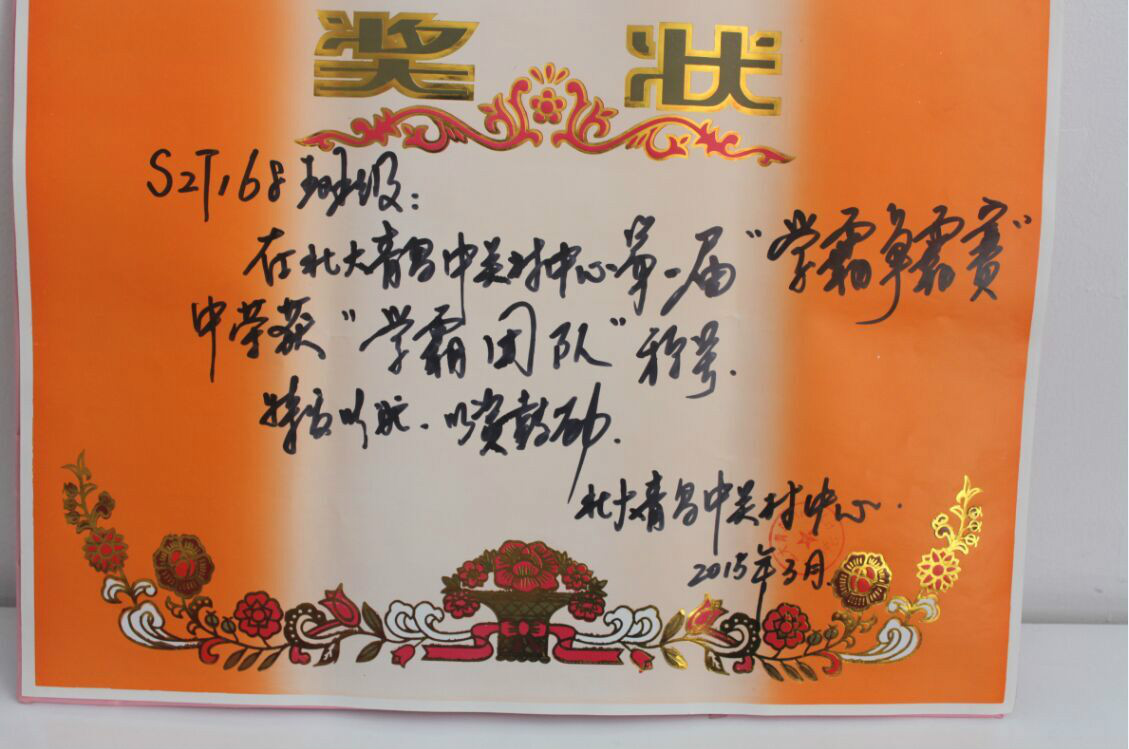 奖状
S2T168班级：
在北大青鸟中关村中心第一届“学霸争霸赛”
中荣获“学霸团队”称号.
特发此状.以资鼓励.
北大青鸟中关村中心.
2015年3月.